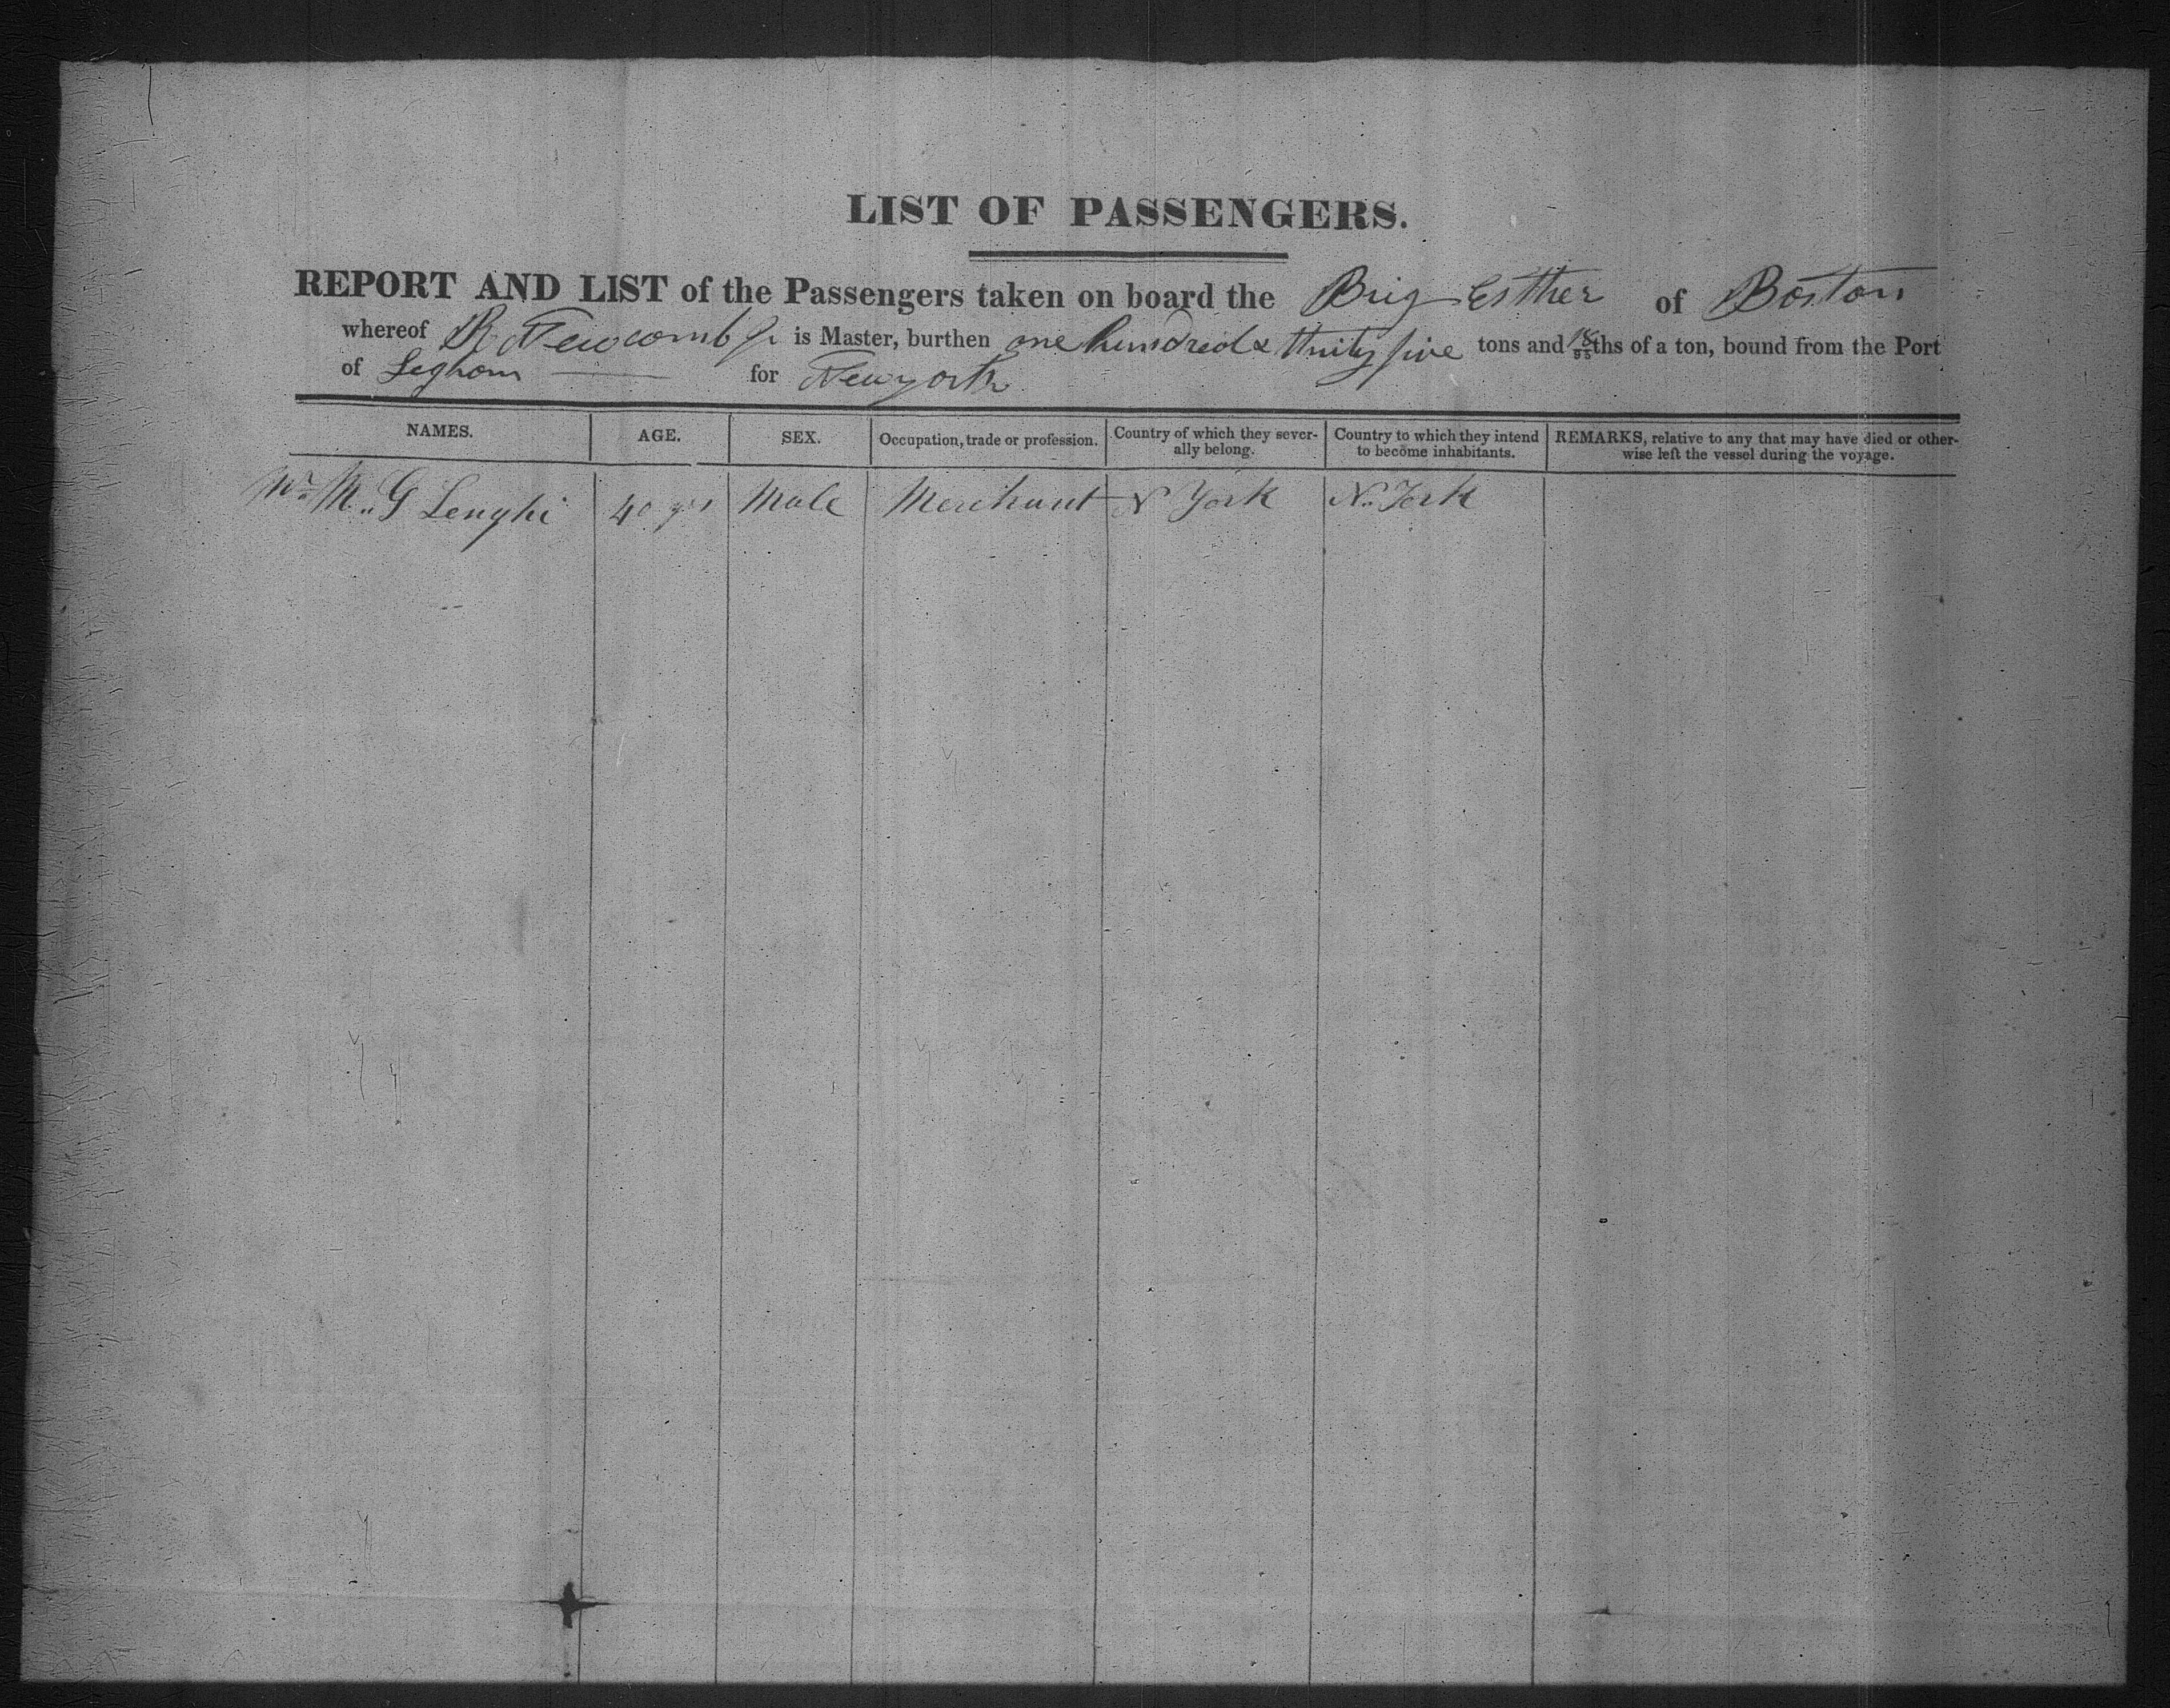 LIST OF PASSENGERS.
REPORT AND LIST of the Passengers taken on board the Brig Esther of Boston
whereof R Newcomb Jr is Master, burthen one hundred & thirty five tons and 18/95ths of a ton, bound from the Port
of Leghorn for Newyork
NAMES. AGE. SEX. Occupation, trade or profession. Country of which they sever- Country to which they intend REMARKS, relative to any that may have died or other-
ally belong. to become inhabitants. wise left the vessel during the voyage.
M.. G Lenghi 40 yrs Male Merchant N York N.. York